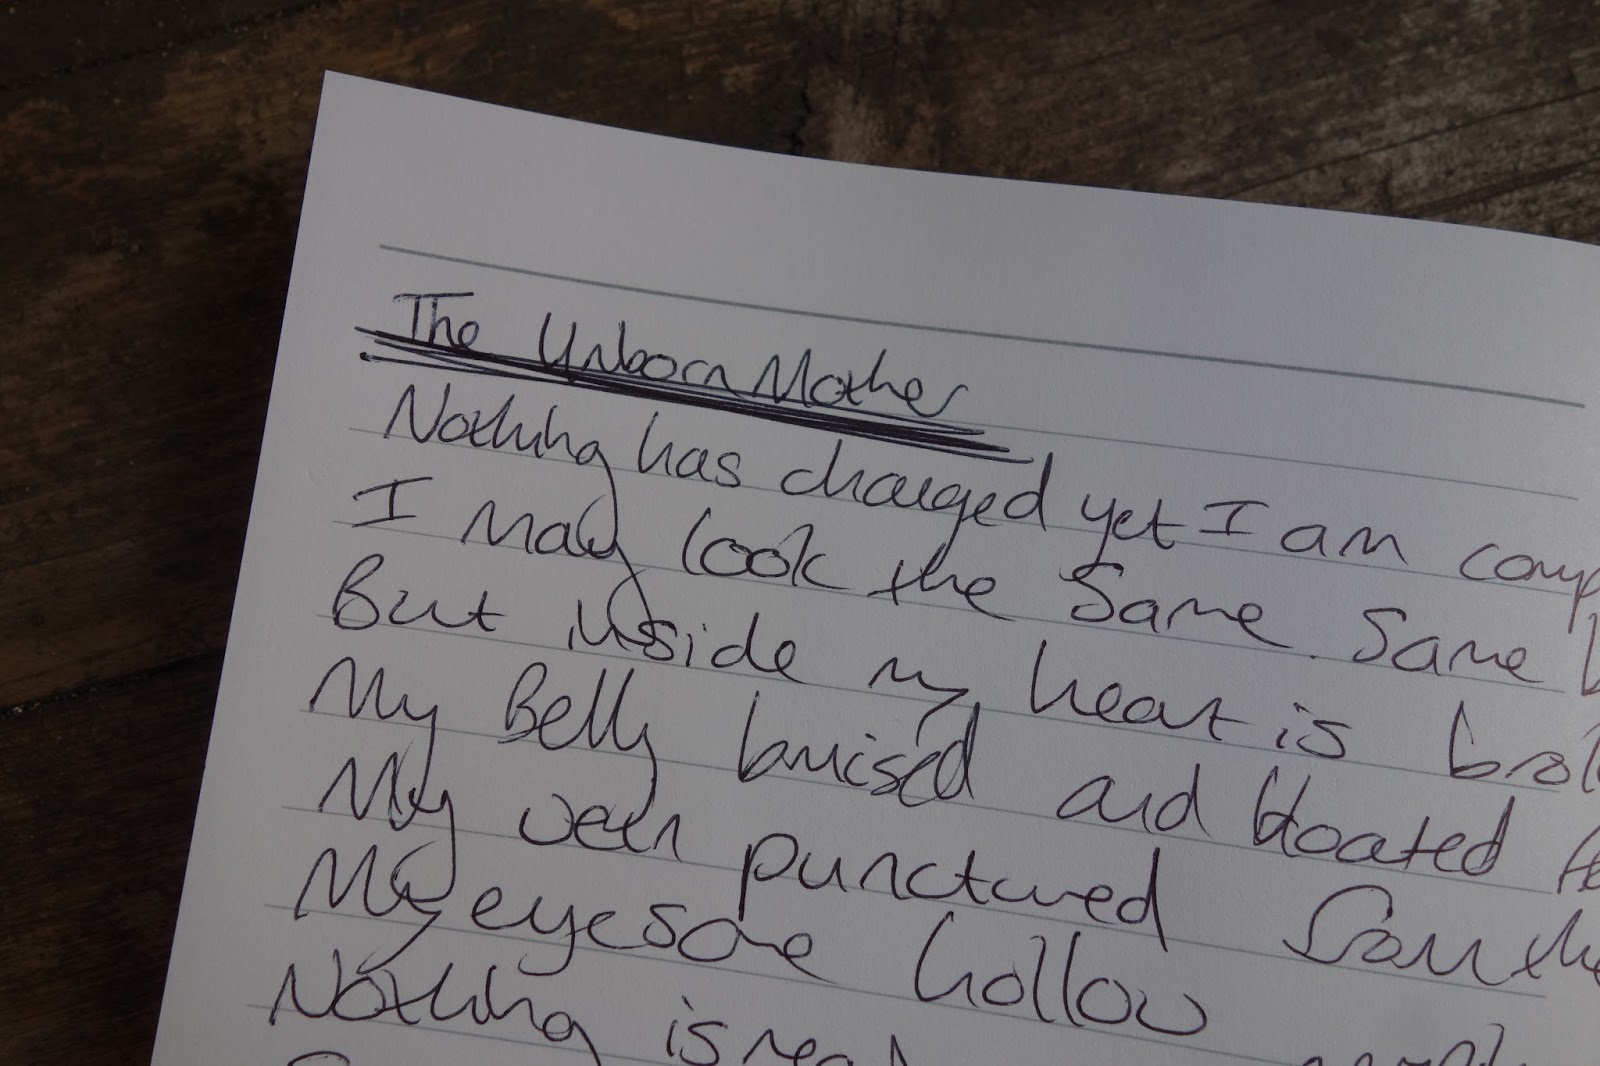 The Unborn Mother
Nothing has changed yet I am comp
I may look the same. Same
But inside my heart is bro
My Belly bruised and bloated
My vein punctured from the
My eyes are hollow
Nothing is real